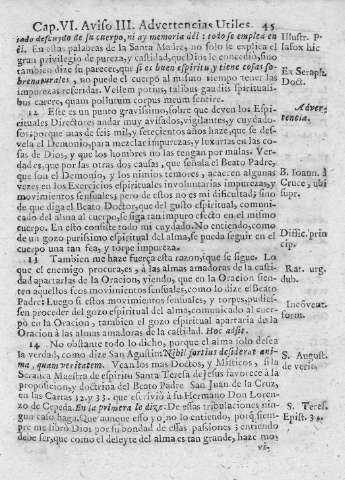 Cap.VI. Aviso III. Advertencias Utiles. 45
rado desnudo de su cuerpo, ni ay memoria dèl: solo se emplea en
èl. En estas palabras de la Santa Madre, no solo le explica el
gran privilegio de pureza, y castidad, que Dios le concedió, sino
tambien dize su parecer, que si es buen espiritu, y tiene cosas so-
brenaturales, no puede el cuerpo al mismo tiempo tener las
impurezas referidas. Vellem potius, talibus gaudijs spiritualibus
carere, quam pollutum corpus meum sentire.
Illustr. P.
Palafox hic
Ex Seraph.
Doct.
12 Este es un punto gravissimo, sobre que deven los Espi-
rituales Directores andar muy avisados, vigilantes, y cuydado-
sos; porque mas de seis mil, y setecientos años haze, que se des-
vela el Demonio, para mezclar impurezas, y luxurias en las co-
sas de Dios, y que los hombres no las tengan por malas. Ver-
dad es, que por las otras dos causas, que señala el Beato Padre,
que son el Demonio, y los nimios temores, acaecen algunas
vezes en los Exercicios espirituales involuntarias impurezas, y
movimientos sensuales; pero de estos no es mi dificultad; sino de
que diga el Beato Doctor, que del gusto espiritual, comunica-
do del alma al cuerpo, se siga tan impuro efecto en el mismo
cuerpo. En esto consiste todo mi cuydado. No entiendo, como
de un gozo purissimo espiritual del alma, se pueda seguir en el
cuerpo una tan fea, y torpe impureza.
Advertencia.
B. Ioann. à
Cruce, ubi
supr.
Diffic. prin
cip.
13 Tambien me haze fuerça esta razon, que se sigue. Lo
que el enemigo procura, es, à las almas amadoras de la casti-
dad apartarlas de la Oracion, viendo, que en la Oracion sien-
ten aquellos feos movimientos sensuales, como lo dize el Beato
Padre: Luego si estos movimientos sensuales, y torpes, pudiessen
proceder del gozo espiritual del alma, comunicado al cuer-
po en la Oracion, tambien el gozo espiritual apartaria de la
Oracion à las almas amadoras de la castidad. Hoc adsit.
Rat. urg.
dub.
14 No obstante todo lo dicho, porque el alma solo desea
la verdad, como dize San Agustin: Nihil fortius desiderat ani-
ma, quam veritatem. Vean los mas Doctos, y Misticos, si la
Serafica Maestra de espiritu Santa Teresa de Jesus favorece à la
proposicion, y doctrina del Beato Padre San Juan de la Cruz,
en las Cartas 32. y 33. que escrivió à su Hermano Don Loren-
zo de Cepeda. En la primera le dize: De essas tribulaciones nin-
gun caso haga. Que aunque esso yo no lo entiendo, porq siem-
pre me librò Dios por su bondad de essas passiones; entiendo
debe ser, que como el deleyte del alma es tan grande, haze mo-
S. August.
de veris.
S. Teres.
Epist. 32.